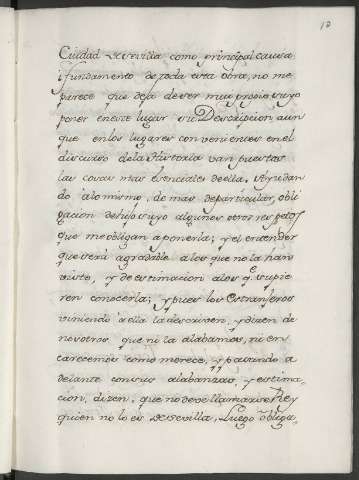 12
Ciudad de sevilla como principal causa
i fundamento de toda esta obra, no me
parece que deja de ser muy propio suyo
poner en este lugar su Descripcion, aun
que en los lugares convenientes en el
discurso de la Historia van puestas
las cosas mas esenciales de ella. Ayudan
do à lo mismo, de mas de particular, obli
gacion de hijo suyo algunos otros respetos
que me obligan a ponerla; y el entender
que será agradable a los que no la han
visto, y de estimacion a los qe supie
ren conocerla; y pues los estranjeros
viniendo à ella la descriven, y dizen de
nosotros que ni la alabamos, ni en
carecemos como merece, y pasando a
delante con sus alabanzas, y estima
cion, dizen, que no deve llamarse Rey
quien no lo es de sevilla, Luego obliga